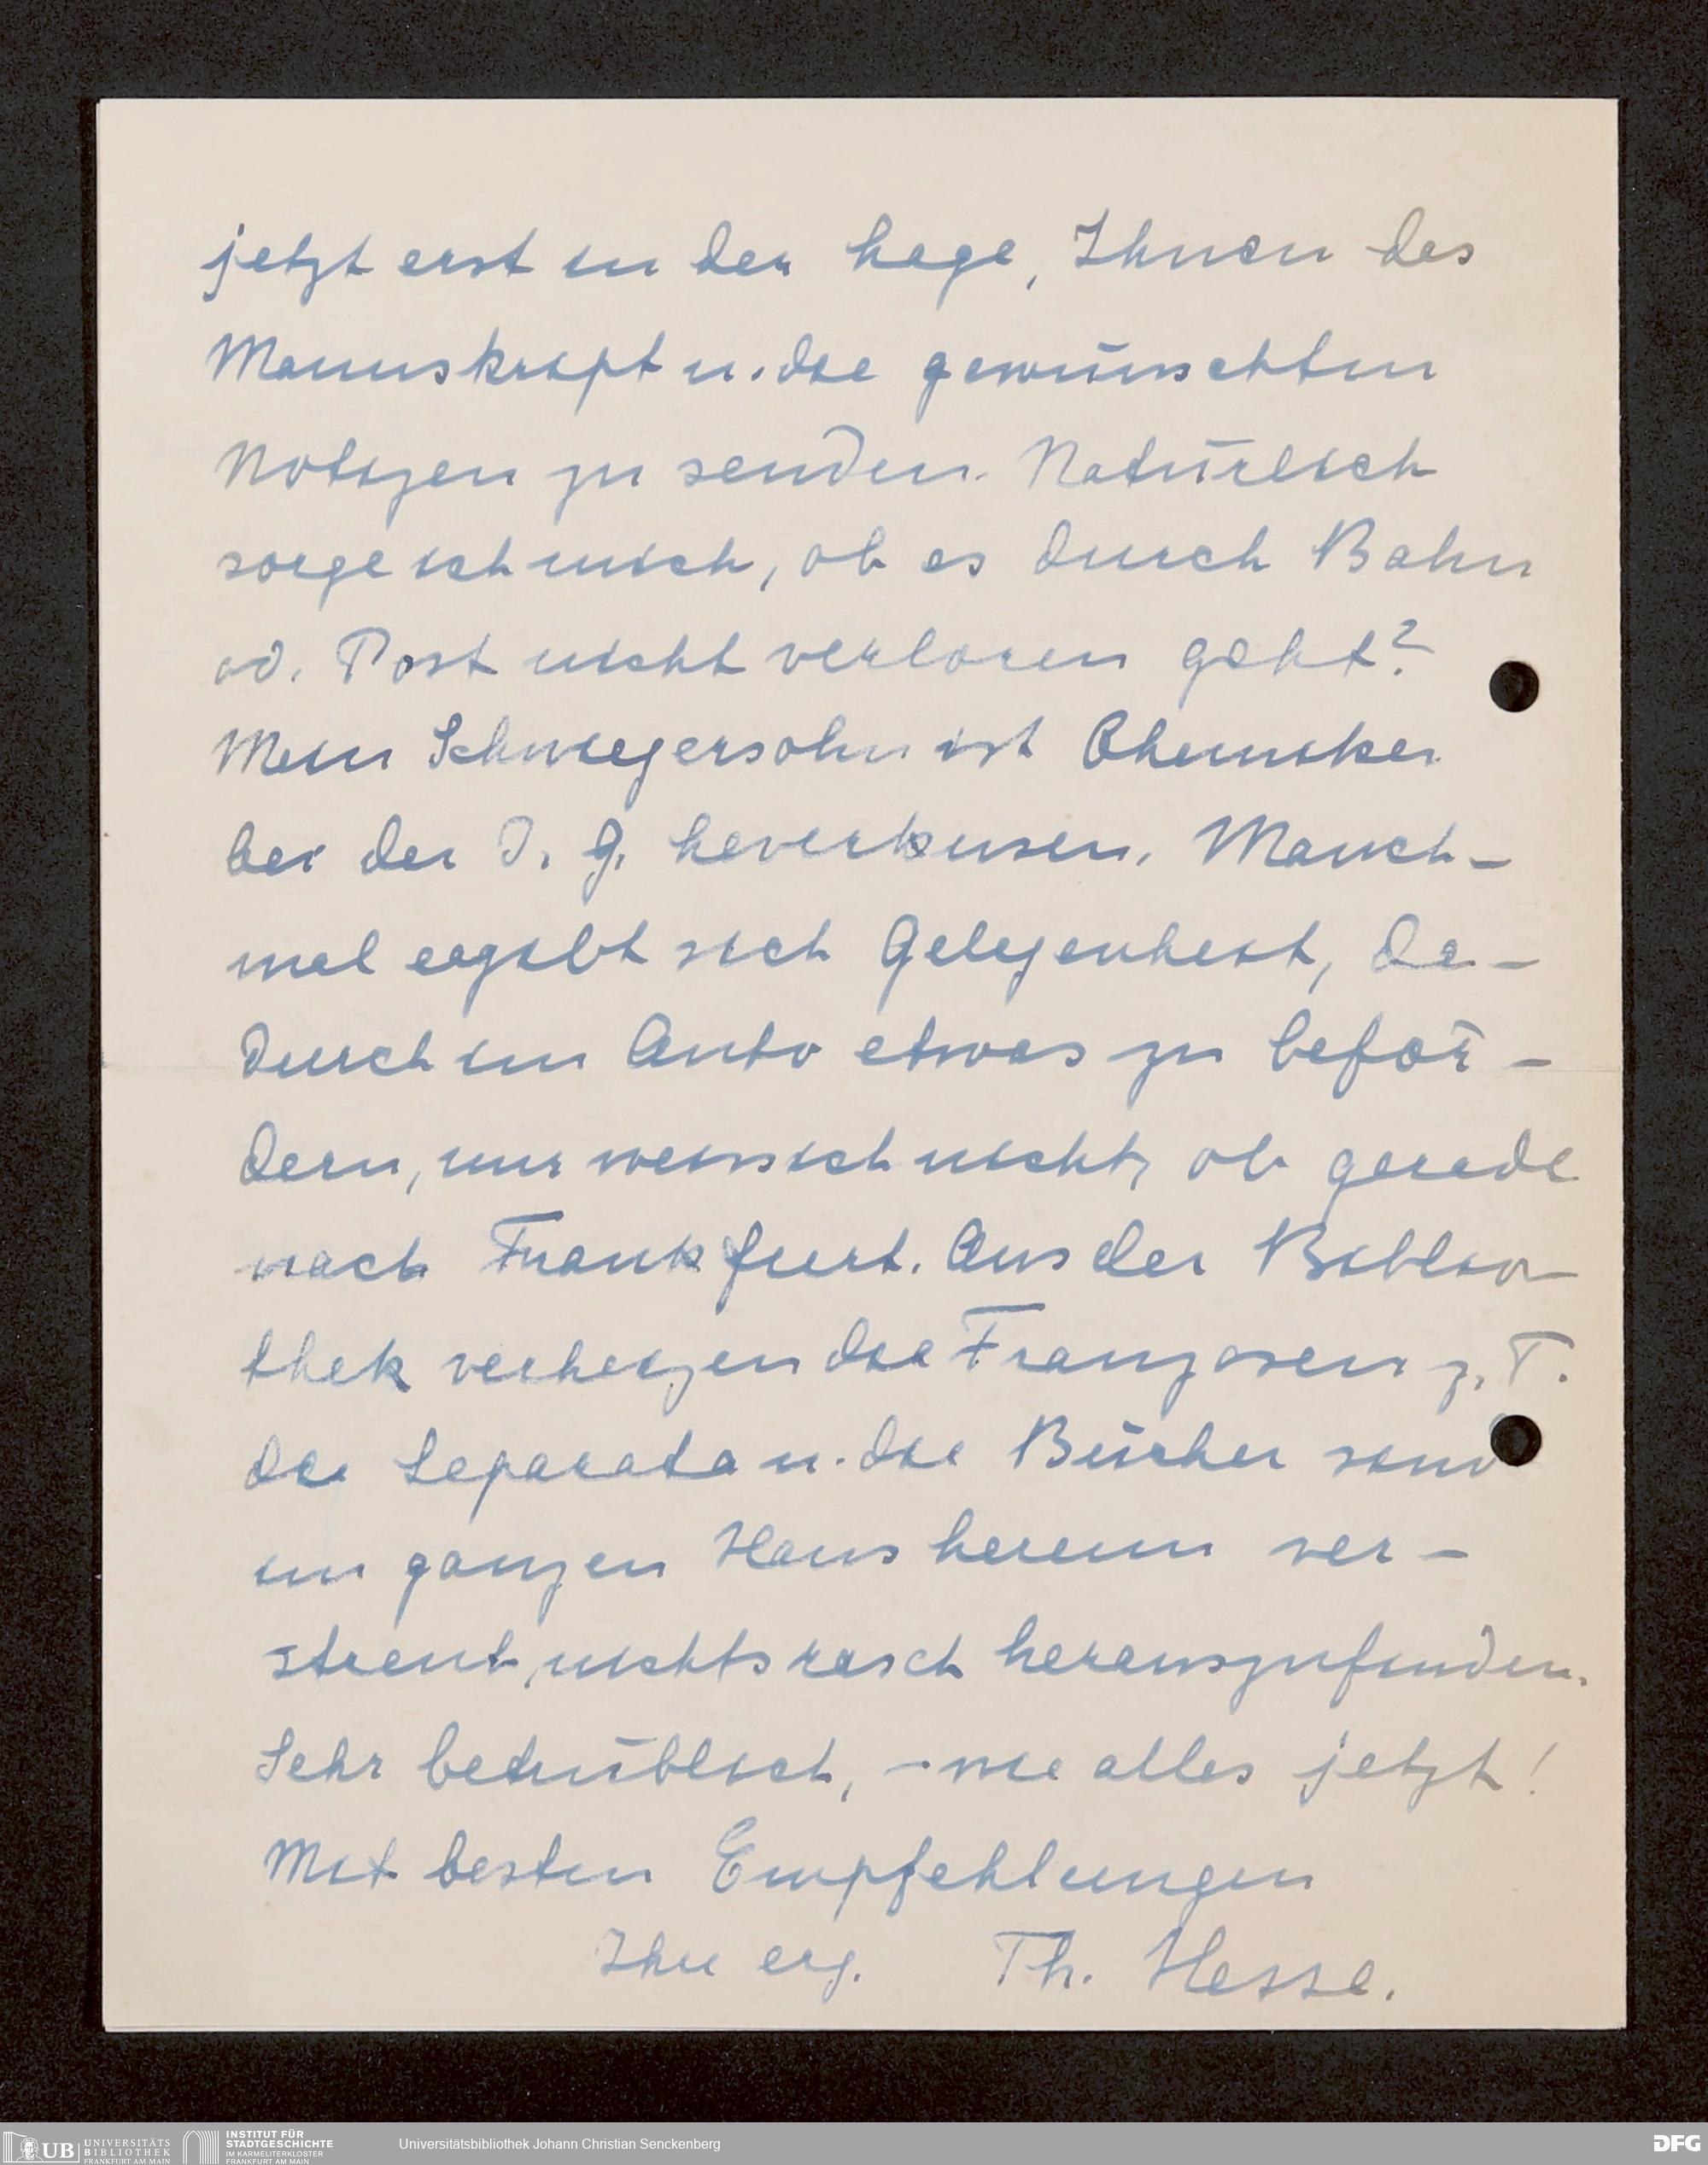 jetzt erst in der Lage, Ihnen das
Manuskript u. die gewünschten
Notizen zu senden. Natürlich
sorge ich mich, ob es durch Bahn
od. Post nicht verloren geht?
Mein Schwiegersohn ist Chemiker
bei der I. G. Leverkusen. Manch-
mal ergibt sich Gelegenheit, da-
durch im Auto etwas zu beför-
dern, nur weiss ich nicht, ob gerade
nach Frankfurt. Aus der Biblio-
thek verheizen die Franzosen z. T.
die Separata u. die Bücher sind
im ganzen Haus herum ver-
streut, nichts rasch herauszufinden.
Sehr betrüblich, – wie alles jetzt!
Mit besten Empfehlungen
Ihre erg. Th. Hesse.
UB UNIVERSITÄTS BIBLIOTHEK FRANKFURT AM MAIN
INSTITUT FÜR STADTGESCHICHTE IM KARMELITERKLOSTER FRANKFURT AM MAIN
Universitätsbibliothek Johann Christian Senckenberg
DFG